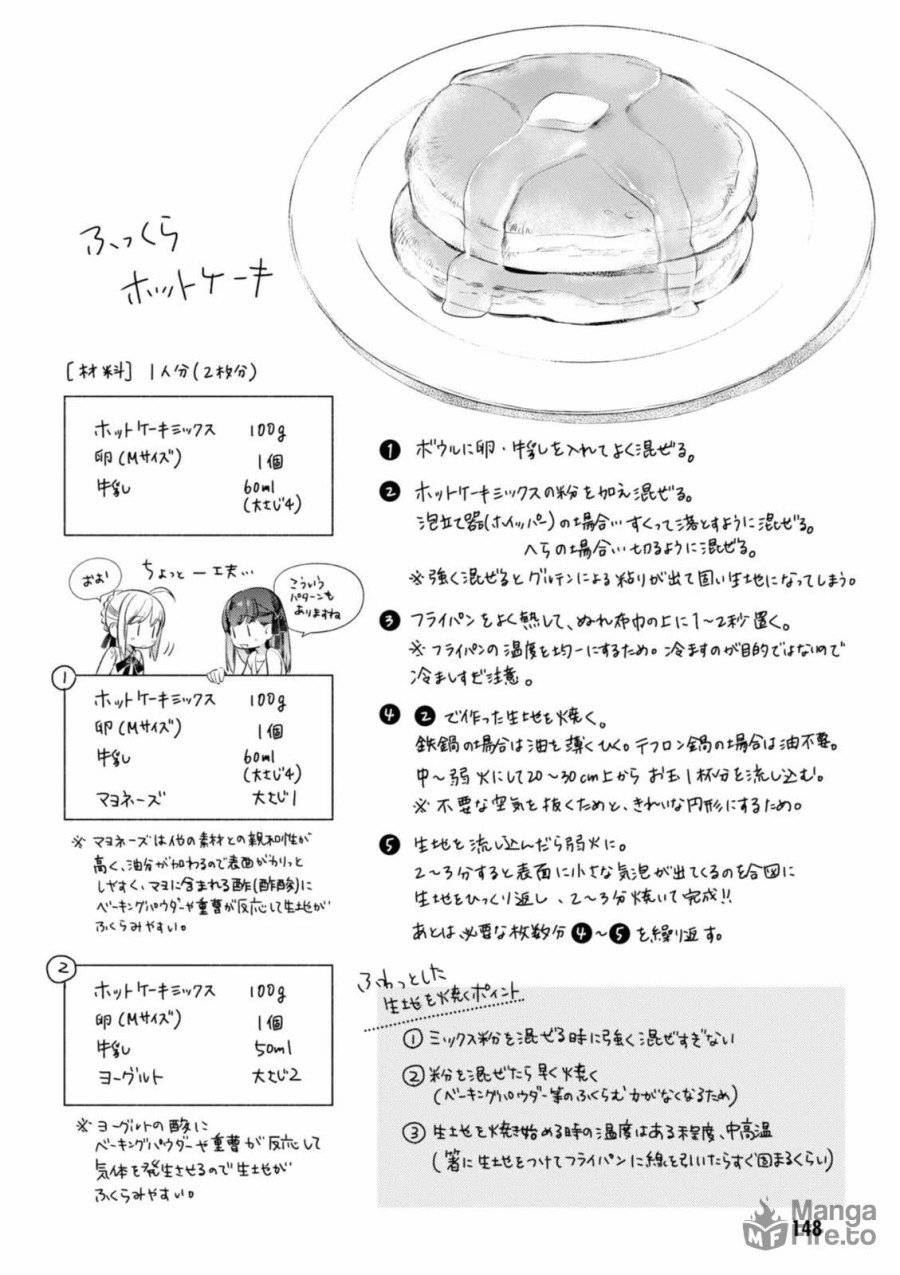 ふっくら
ホットケーキ
[材料] 1人分(2枚分)
ホットケーキミックス 100g
卵(Mサイズ) 1個
牛乳 60ml
(大さじ4)
おお!
ちょっと一工夫…
こういう
パターンも
ありますね
①
ホットケーキミックス 100g
卵(Mサイズ) 1個
牛乳 60ml
(大さじ4)
マヨネーズ 大さじ1
※ マヨネーズは他の素材との親和性が
高く、油分が加わるので表面がカリッと
しやすく、マヨに含まれる酢(酢酸)に
ベーキングパウダーや重曹が反応して生地が
ふくらみやすい。
②
ホットケーキミックス 100g
卵(Mサイズ) 1個
牛乳 50ml
ヨーグルト 大さじ2
※ ヨーグルトの酸に
ベーキングパウダーや重曹が反応して
気体を発生させるので生地が
ふくらみやすい。
❶ ボウルに卵・牛乳を入れてよく混ぜる。
❷ ホットケーキミックスの粉を加え混ぜる。
泡立て器(ホイッパー)の場合…すくって落とすように混ぜる。
へらの場合…切るように混ぜる。
※強く混ぜるとグルテンによる粘りが出て固い生地になってしまう。
❸ フライパンをよく熱して、ぬれ布巾の上に1~2秒置く。
※フライパンの温度を均一にするため。冷ますのが目的ではないので
冷ましすぎ注意。
❹ ❷で作った生地を焼く。
鉄鍋の場合は油を薄くひく。テフロン鍋の場合は油不要。
中~弱火にして20~30cm上からお玉1杯分を流し込む。
※不要な空気を抜くためと、きれいな円形にするため。
❺ 生地を流し込んだら弱火に。
2~3分すると表面に小さな気泡が出てくるのを合図に
生地をひっくり返し、2~3分焼いて完成!!
あとは、必要な枚数分❹~❺を繰り返す。
ふわっとした
生地を焼くポイント
① ミックス粉を混ぜる時に強く混ぜすぎない
② 粉を混ぜたら早く焼く
(ベーキングパウダー等のふくらむ力がなくなるため)
③ 生地を焼き始める時の温度はある程度、中高温
(箸に生地をつけてフライパンに線を引いたらすぐ固まるくらい)
148
MF
Manga
Fire.to